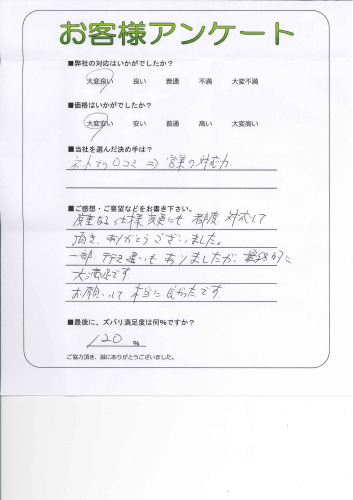 お客様アンケート
■弊社の対応はいかがでしたか？
大変良い 良い 普通 不満 大変不満
■価格はいかがでしたか？
大変安い 安い 普通 高い 大変高い
■当社を選んだ決め手は？
ネットでの口コミ ⇒ 営業の対応力
■ご感想・ご要望などをお書き下さい。
度重なる仕様変更にも都度対応して
頂き、ありがとうございました。
一部、行き違いもありましたが、最終的に
大満足です
お願いして本当に良かったです。
■最後に、ズバリ満足度は何％ですか？
120 ％
ご協力頂き、誠にありがとうございました。